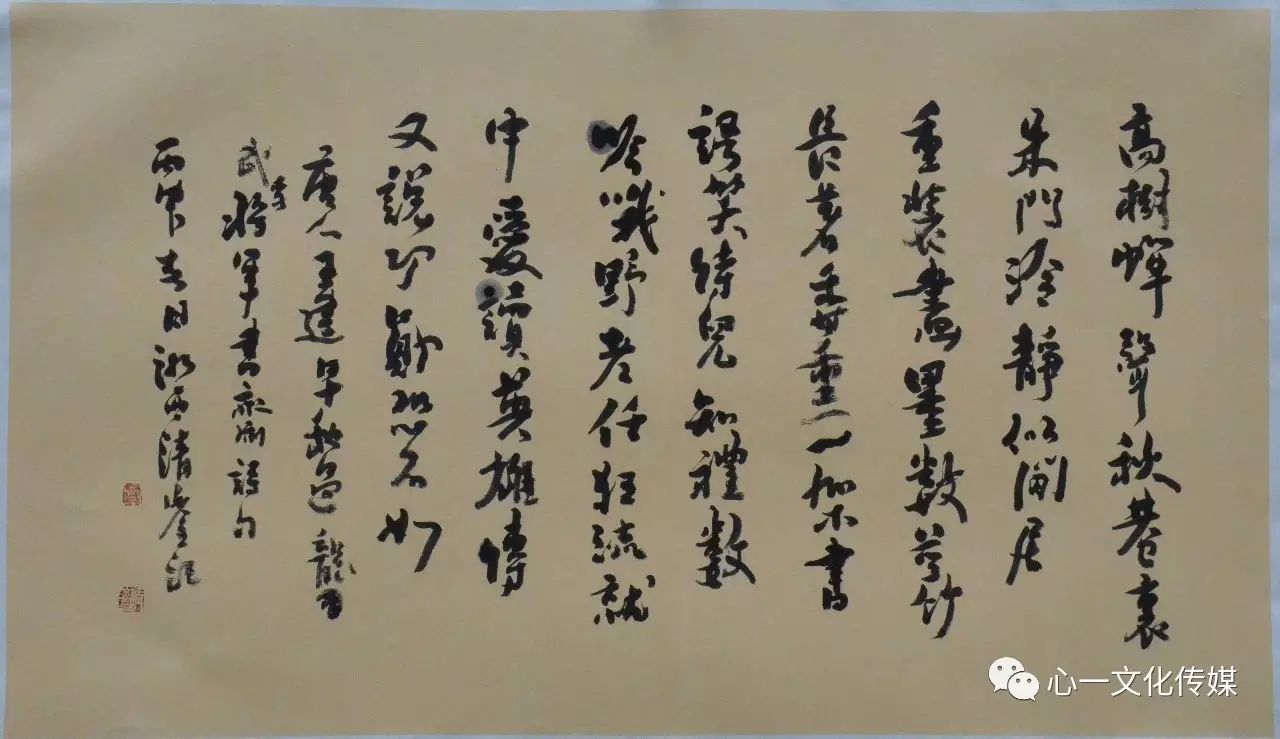 高樹蟬聲秋巷裏
朱門冷靜似閒居
重裝畫墨數莖竹
長著香薰一架書
語笑侍兒知禮數
吟哦野老任狂疏就
中愛讀英雄傳
又說功勳恐不如
唐人王建早秋過龍
武李將軍書齋詩句
丙申春日 清 記
心一文化传媒